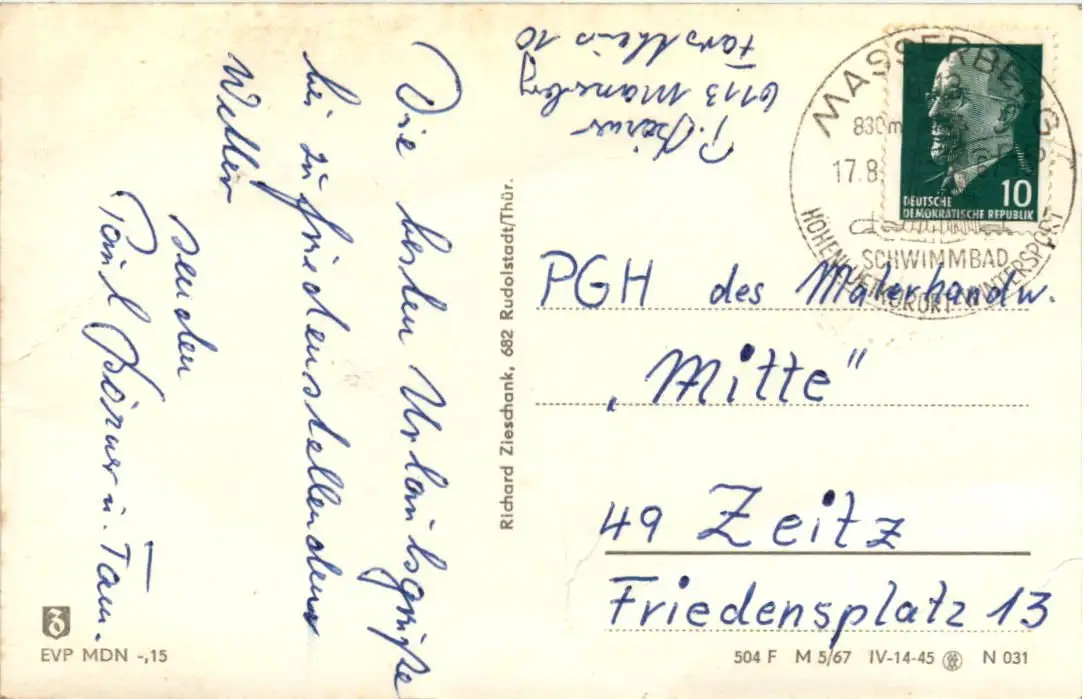 Die besten Urlaubsgrüße
bei zufriedenstellendem
Wetter
senden
Paul u. Fam.
6113
10
MASSERBERG
830m
17.8.
SCHWIMMBAD
HÖHENLUFTKURORT WINTERSPORT
10
DEUTSCHE
DEMOKRATISCHE REPUBLIK
PGH des Malerhandw.
„Mitte"
49 Zeitz
Friedensplatz 13
Richard Zieschank, 682 Rudolstadt/Thür.
EVP MDN -,15
504 F M 5/67 IV-14-45 N 031